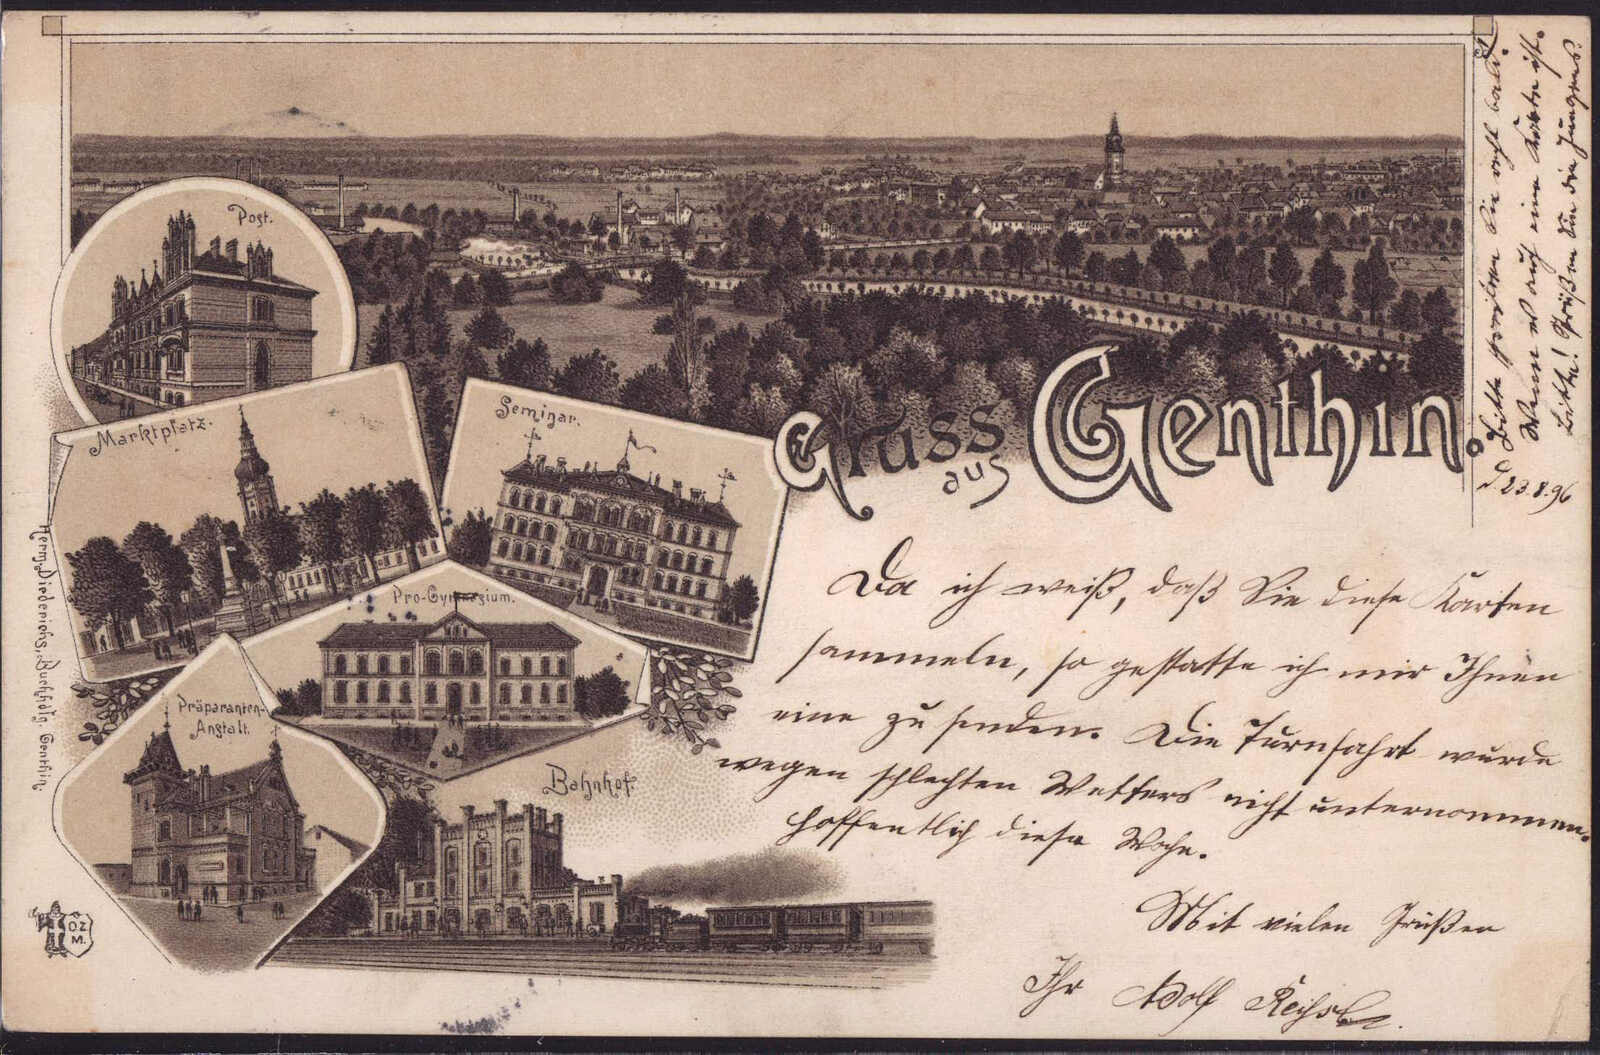 Post.
Marktplatz.
Seminar.
Pro-Gymnasium.
Präparanten-
Anstalt.
Bahnhof.
Gruss
aus
Genthin.
Herm. Diederichs, Buchhdlg. Genthin.
O.Z.
M.
Da ich weiß, daß Sie diese Karten
sammeln, so gestatte ich mir Ihnen
eine zu senden. Die Turnfahrt wurde
wegen schlechten Wetters nicht unternommen.
Hoffentlich diese Woche.
Mit vielen Grüßen
Ihr Adolf
Bitte schreiben Sie recht bald.
Wenn es auch eine Karte ist.
Bitte! Grüßen Sie die Jungens.
d. 23.8.96